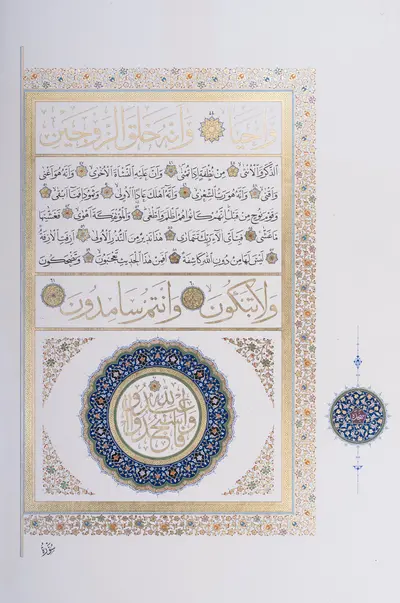 وَأَحْيَا وَأَنَّهُ خَلَقَ الزَّوْجَيْنِ
الذَّكَرَ وَالْأُنْثَى مِنْ نُطْفَةٍ إِذَا تُمْنَى وَأَنَّ عَلَيْهِ النَّشْأَةَ الْأُخْرَى وَأَنَّهُ هُوَ أَغْنَى
وَأَقْنَى وَأَنَّهُ هُوَ رَبُّ الشِّعْرَى وَأَنَّهُ أَهْلَكَ عَادًا الْأُولَى وَثَمُودَ فَمَا أَبْقَى
وَقَوْمَ نُوحٍ مِنْ قَبْلُ إِنَّهُمْ كَانُوا هُمْ أَظْلَمَ وَأَطْغَى وَالْمُؤْتَفِكَةَ أَهْوَى فَغَشَّاهَا
مَا غَشَّى فَبِأَيِّ آلَاءِ رَبِّكَ تَتَمَارَى هَذَا نَذِيرٌ مِنَ النُّذُرِ الْأُولَى أَزِفَتِ الْآزِفَةُ
لَيْسَ لَهَا مِنْ دُونِ اللَّهِ كَاشِفَةٌ أَفَمِنْ هَذَا الْحَدِيثِ تَعْجَبُونَ وَتَضْحَكُونَ
وَلَا تَبْكُونَ وَأَنْتُمْ سَامِدُونَ
فَاسْجُدُوا لِلَّهِ وَاعْبُدُوا
سورة